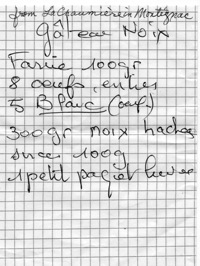 from La Chaumière in Montignac
Gâteau Noix
Farine 100gr
8 oeufs, entiers
5 Blanc (oeuf)
300gr noix hachées
sucre 100g
1 petit paqiet levure